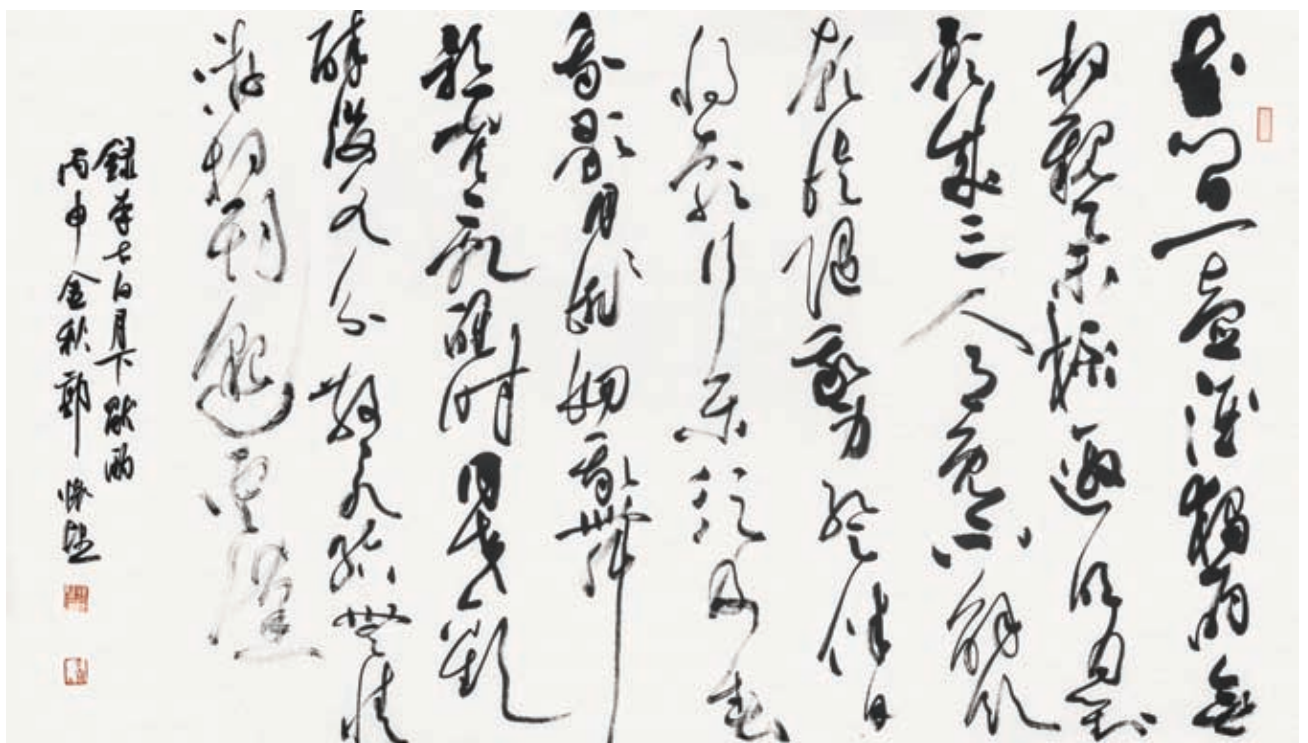 花間一壺酒獨酌無
相親舉杯邀明月對
影成三人月既不解飲
影徒隨我身暫伴月
將影行樂須及春
我歌月徘徊我舞
影零亂醒時同交歡
醉後各分散永結無情
遊相期邈雲漢
錄李太白月下獨酌
丙申金秋郭